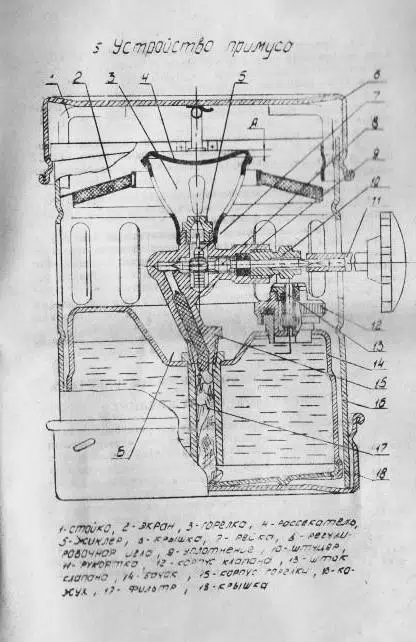 5 Устройство примуса
1 2 3 4 5 6
7
А
8
9
10
11
12
13
14
15
16
Б 17
18
1-стойка, 2-экран, 3-горелка, 4-рассекатель,
5-жиклер, 6-крышка, 7-рейка, 8-регули-
ровочная игла, 9-уплотнение, 10-штуцер,
11-рукоятка, 12-корпус клапана, 13-шток
клапана, 14-бачок, 15-корпус горелки, 16-ко-
жух, 17-фильтр, 18-крышка